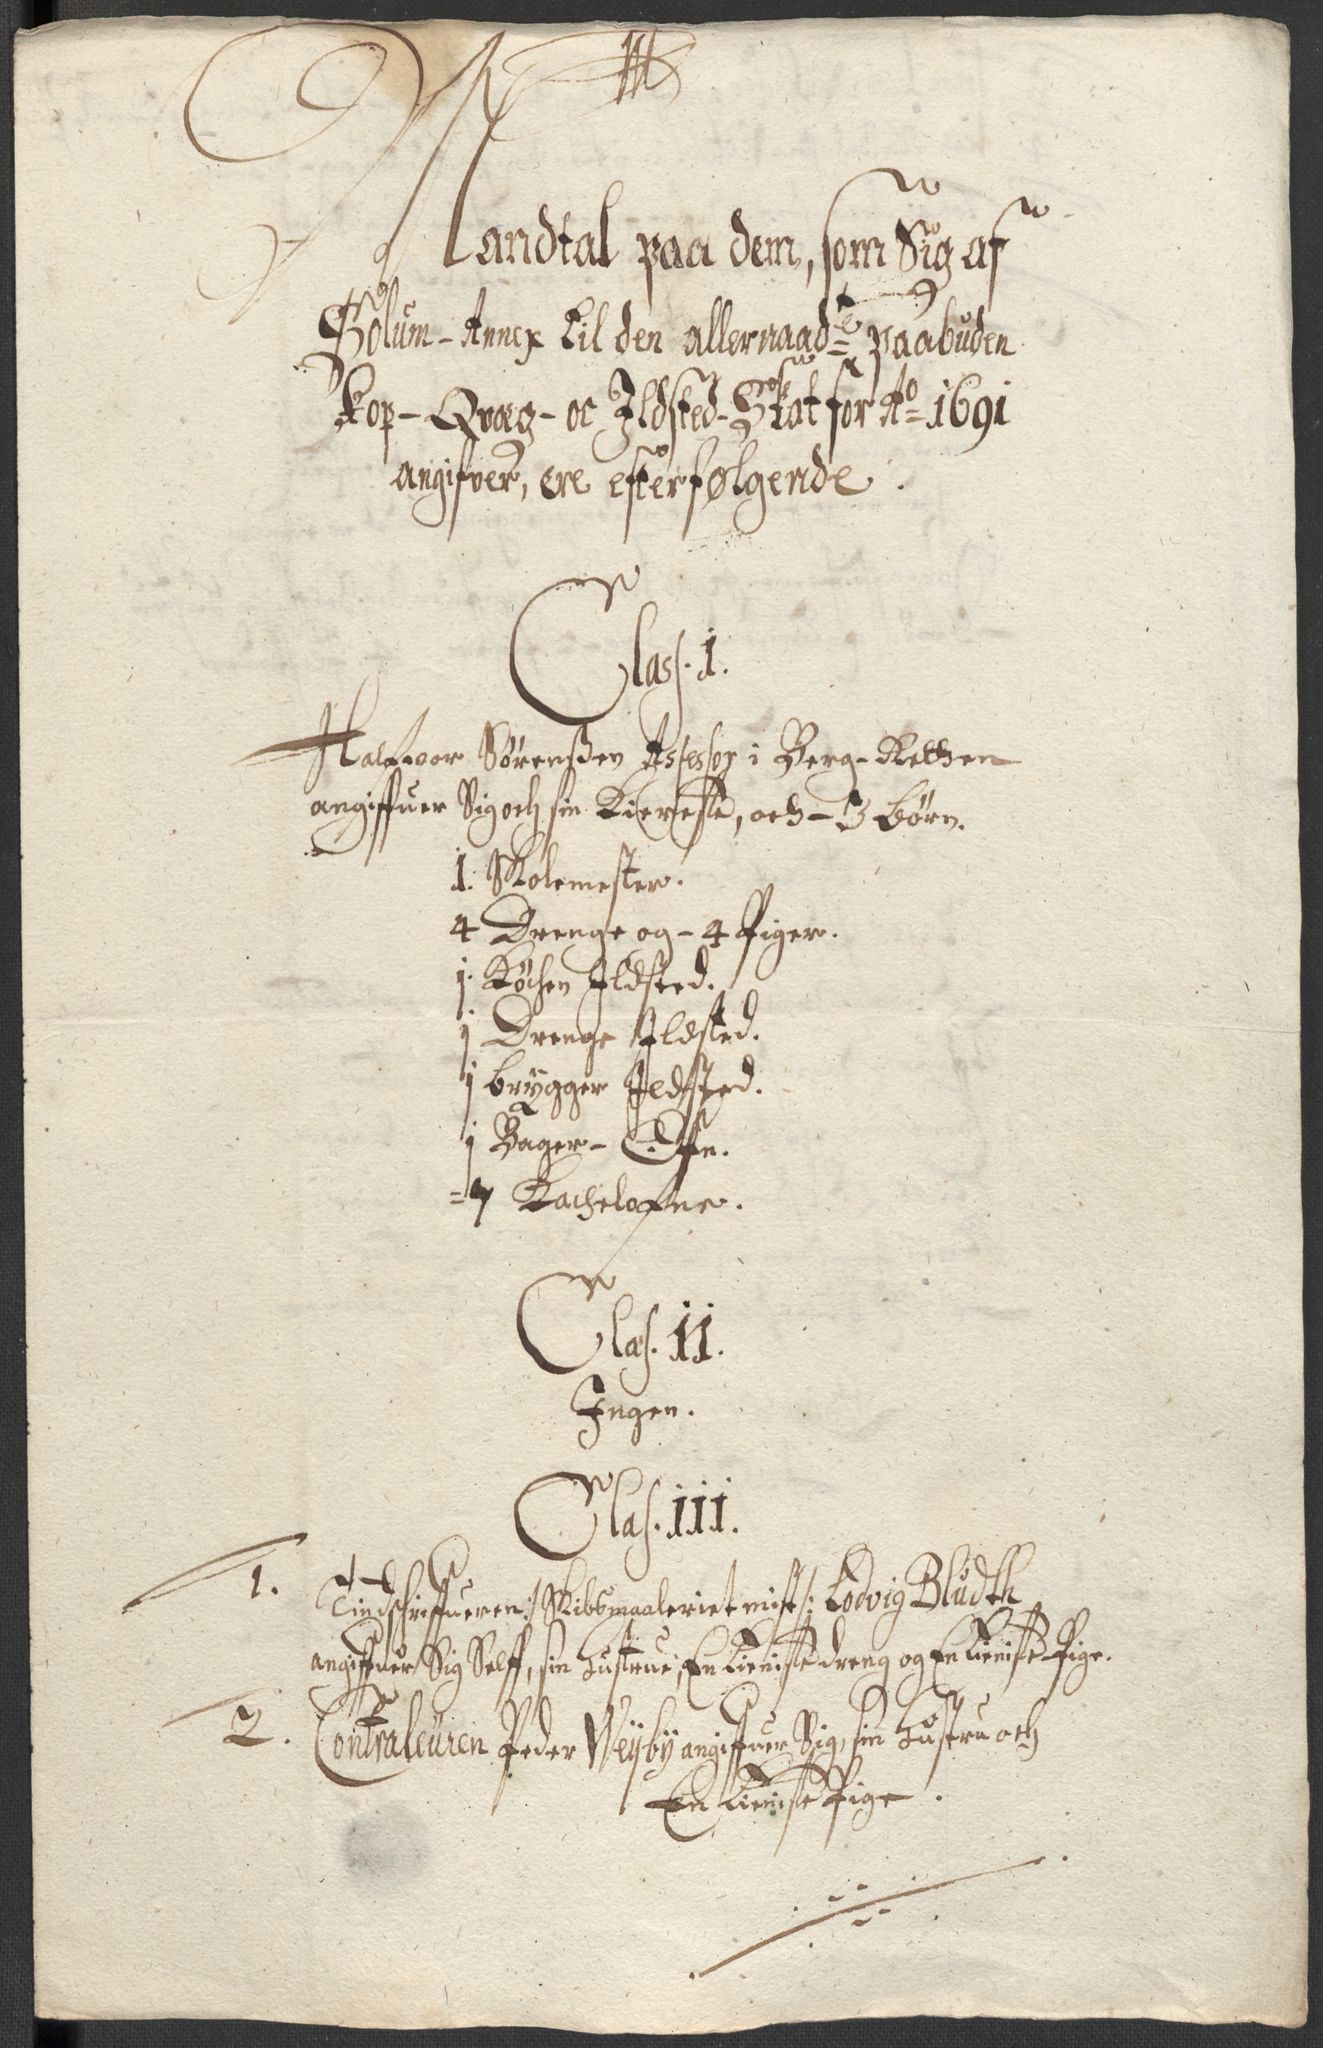 Mandtal paa dem, som Sig af
Solum-Annex til den allernaad=te paabuden
Kop-Qvæg-oc Ildsted-Skat for Ao= 1691
angifver, ere efterfølgende.
Class. 1.
Halfvor Sørensßen Assessor i Berg-Retten
angiffuer Sig och sin Kiereste, och-3 børn.
1. Skolemester.
4 Drenge og-4 Piger.
1. Køchen Ildsted.
1 Drenge Ildsted.
1 brygger Ildsted.
1 Bager-Ofn.
=7 Kachelofne.
Clas. II.
Ingen.
Clas. III.
1. Tindschriffueren :/ Skibbmaaleriet mist /: Lodvig Bludth
angiffuer Sig Selff, sin Hustrue, En tieniste dreng og En tieniste Pige.
2. Contraleuren Peder Weyby angiffuer Sig, sin Hustru och
En tieniste Pige.